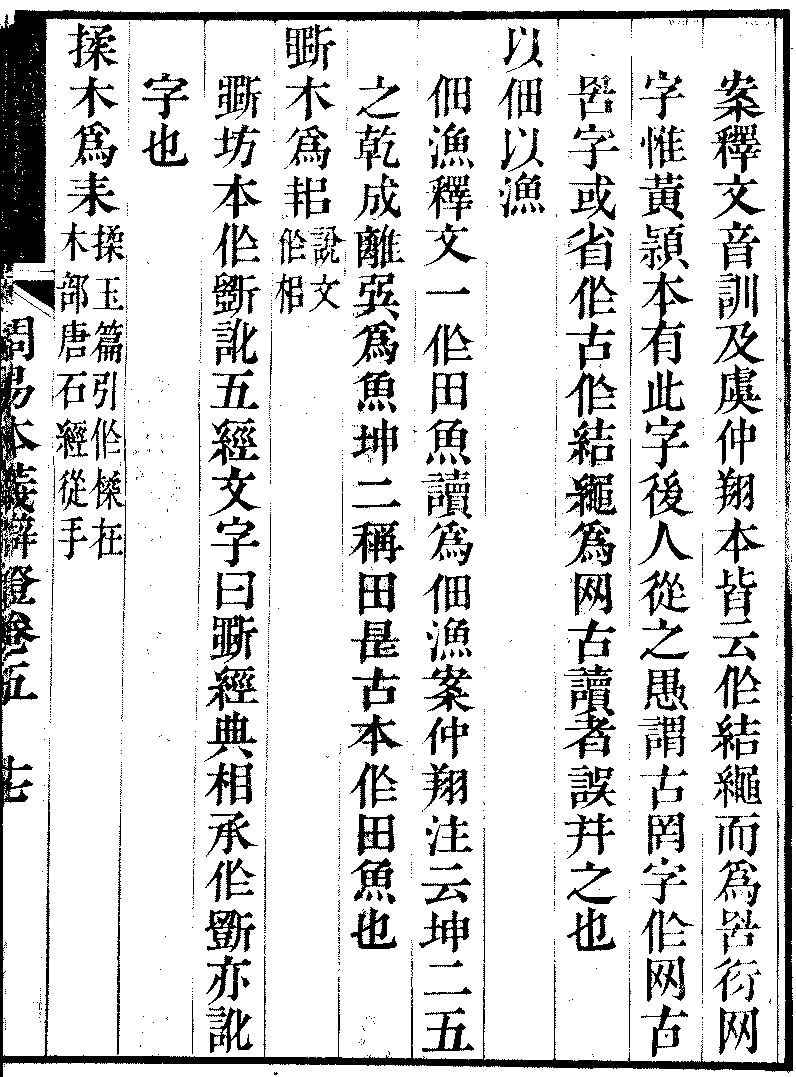 案釋文音訓及虞仲翔本皆云作結繩而爲罟衍网
字惟黃潁本有此字後人從之愚謂古罔字作网古
罟字或省作古作結繩爲网古讀者誤幷之也
以佃以漁
佃漁釋文一作田魚讀爲佃漁案仲翔注云坤二五
之乾成離巽爲魚坤二稱田是古本作田魚也
斲木爲耜說文作枱
斲坊本作斵訛五經文字曰斲經典相承作斵亦訛
字也
揉木爲耒揉玉篇引作楺在木部唐石經從手
周易本義辯證卷五 十七